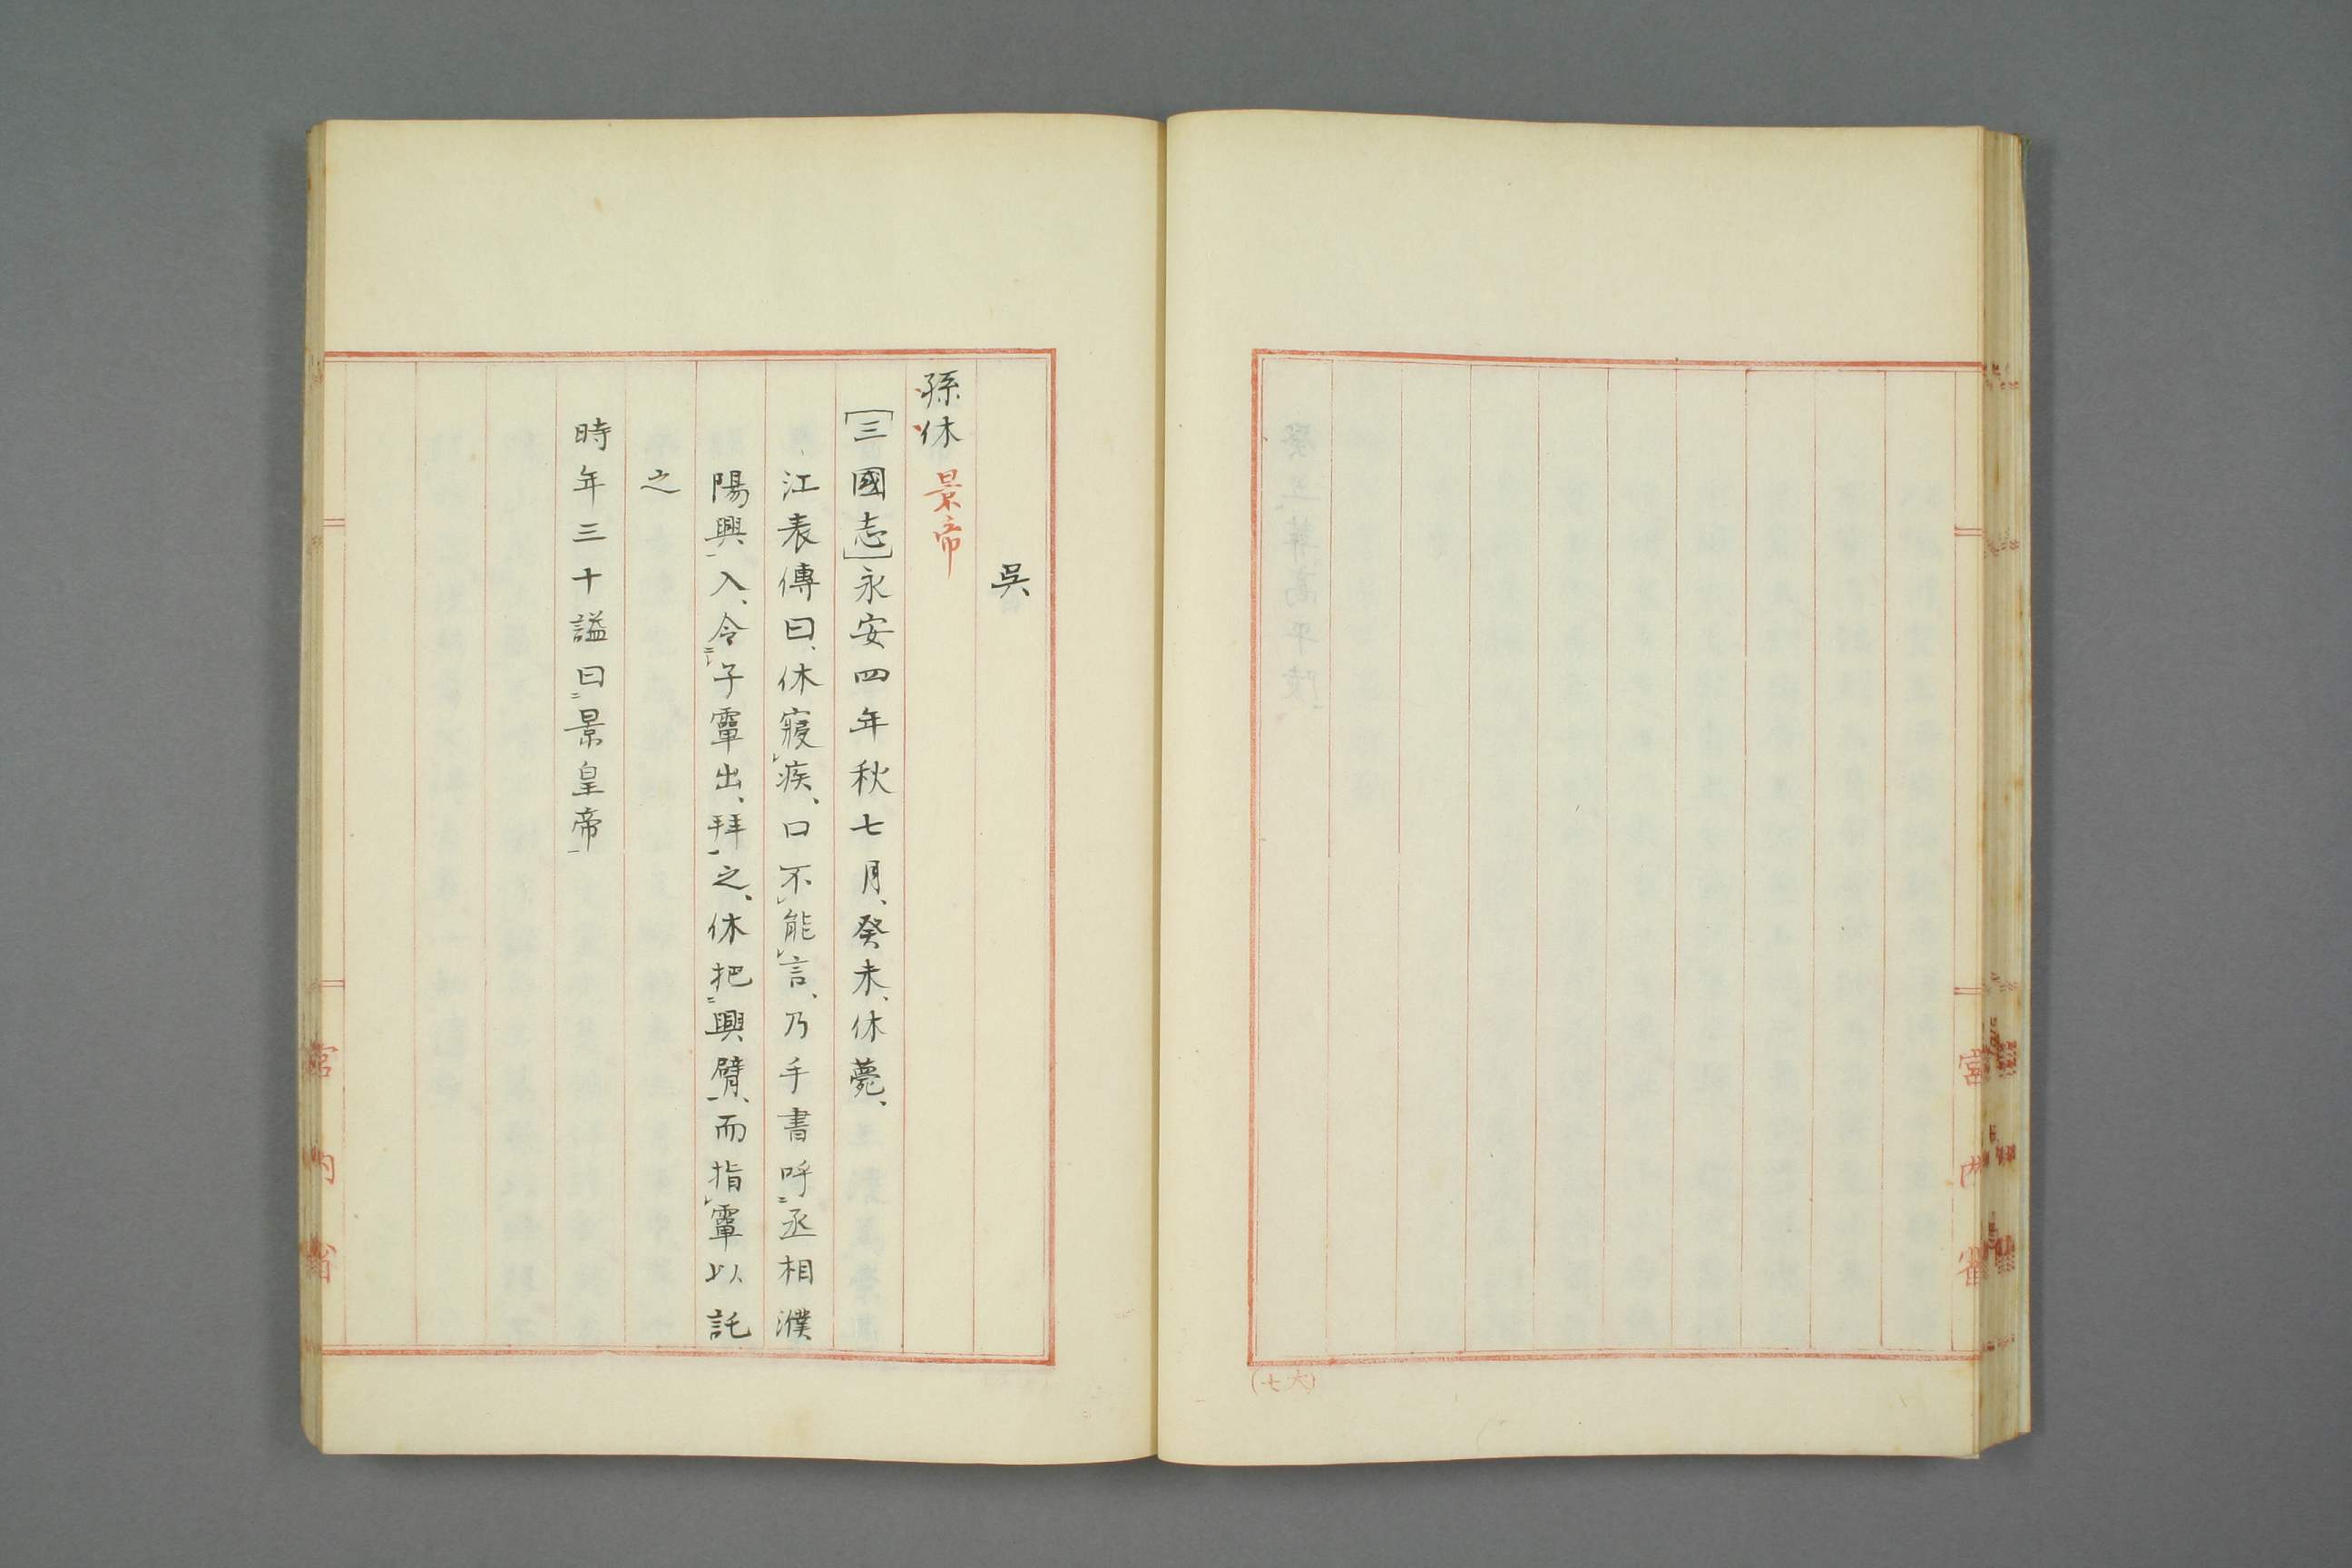 吳
孫休 景帝
[三國志]永安四年秋七月、癸未、休薨、
江表傳曰、休寢レ疾、口不レ能レ言、乃手書呼二丞相濮
陽興一入、令二子𩅦出、拜一之、休把二興臂一、而指レ𩅦以託
之
時年三十謚曰二景皇帝一
宮內省
(七六)
宮內省